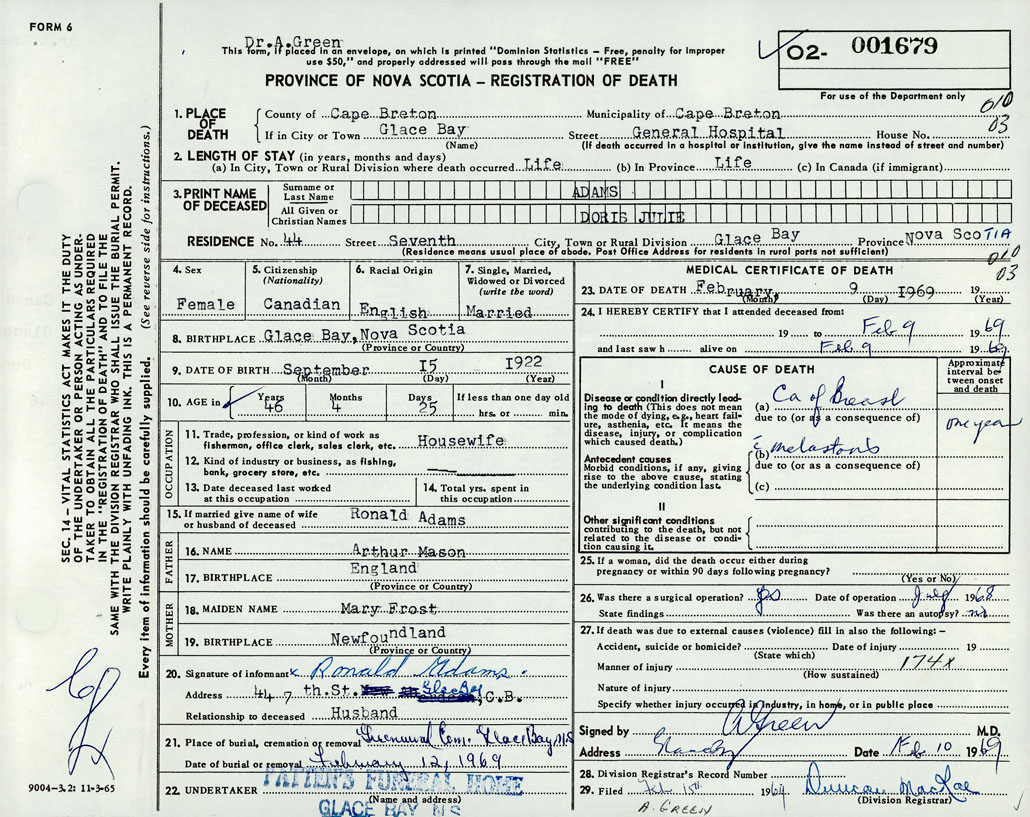 FORM 6
Dr.A.Green
This form, if placed in an envelope, on which is printed "Dominion Statistics – Free, penalty for improper
use $50," and properly addressed will pass through the mail "FREE"
PROVINCE OF NOVA SCOTIA – REGISTRATION OF DEATH
02- 001679
For use of the Department only
010
03
1. PLACE OF DEATH
County of Cape Breton Municipality of Cape Breton
If in City or Town Glace Bay Street General Hospital House No.
(Name) (If death occurred in a hospital or institution, give the name instead of street and number)
2. LENGTH OF STAY (in years, months and days)
(a) In City, Town or Rural Division where death occurred Life (b) In Province Life (c) In Canada (if immigrant)
3. PRINT NAME OF DECEASED
Surname or Last Name ADAMS
All Given or Christian Names DORIS JULIE
RESIDENCE No. 44 Street Seventh City, Town or Rural Division Glace Bay Province Nova ScoTIA
(Residence means usual place of abode. Post Office Address for residents in rural parts not sufficient)
010
03
4. Sex Female
5. Citizenship (Nationality) Canadian
6. Racial Origin English
7. Single, Married, Widowed or Divorced (write the word) Married
8. BIRTHPLACE Glace Bay,Nova Scotia
(Province or Country)
9. DATE OF BIRTH September I5 I922
(Month) (Day) (Year)
10. AGE in Years 46 Months 4 Days 25 If less than one day old hrs. or min.
OCCUPATION
11. Trade, profession, or kind of work as fisherman, office clerk, sales clerk, etc. Housewife
12. Kind of industry or business, as fishing, bank, grocery store, etc.
13. Date deceased last worked at this occupation
14. Total yrs. spent in this occupation
15. If married give name of wife or husband of deceased Ronald Adams
FATHER
16. NAME Arthur Mason
17. BIRTHPLACE England
(Province or Country)
MOTHER
18. MAIDEN NAME Mary Frost
19. BIRTHPLACE Newfoundland
(Province or Country)
20. Signature of informant x Ronald Adams.
Address 44 7 th.St. Glace Bay ,C.B.
Relationship to deceased Husband
21. Place of burial, cremation or removal Greenwood Cem. Glace Bay, N.S
Date of burial or removal February 12, 1969
22. UNDERTAKER PATTEN'S FUNERAL HOME
(Name and address)
GLACE BAY N S
MEDICAL CERTIFICATE OF DEATH
23. DATE OF DEATH February, 9 I969 19
(Month) (Day) (Year)
24. I HEREBY CERTIFY that I attended deceased from:
19 to Feb 9 1969
and last saw h alive on Feb 9 1969
CAUSE OF DEATH
Approximate interval between onset and death
I
Disease or condition directly leading to death (This does not mean the mode of dying, e.g., heart failure, asthenia, etc. It means the disease, injury, or complication which caused death.)
(a) Ca of Breast
due to (or as a consequence of)
one year
Antecedent causes
Morbid conditions, if any, giving rise to the above cause, stating the underlying condition last.
(b)
due to (or as a consequence of)
(c)
II
Other significant conditions
contributing to the death, but not related to the disease or condition causing it.
25. If a woman, did the death occur either during
pregnancy or within 90 days following pregnancy?
(Yes or No)
26. Was there a surgical operation? yes Date of operation July 1968
State findings Was there an autopsy? no
27. If death was due to external causes (violence) fill in also the following: –
Accident, suicide or homicide? Date of injury 19
(State which)
Manner of injury 174x
(How sustained)
Nature of injury
Specify whether injury occurred in industry, in home, or in public place
Signed by A Green M.D.
Address Date Feb 10 1969
28. Division Registrar's Record Number
29. Filed Feb 15th 1969 Duncan MacRae
(Division Registrar)
A. GREEN
SEC. 14 – VITAL STATISTICS ACT MAKES IT THE DUTY
OF THE UNDERTAKER OR PERSON ACTING AS UNDER-
TAKER TO OBTAIN ALL THE PARTICULARS REQUIRED
IN THE "REGISTRATION OF DEATH" AND TO FILE THE
SAME WITH THE DIVISION REGISTRAR WHO SHALL ISSUE THE BURIAL PERMIT.
WRITE PLAINLY WITH UNFADING INK. THIS IS A PERMANENT RECORD.
Every item of information should be carefully supplied. (See reverse side for instructions.)
9004–3.2: 11-3-65